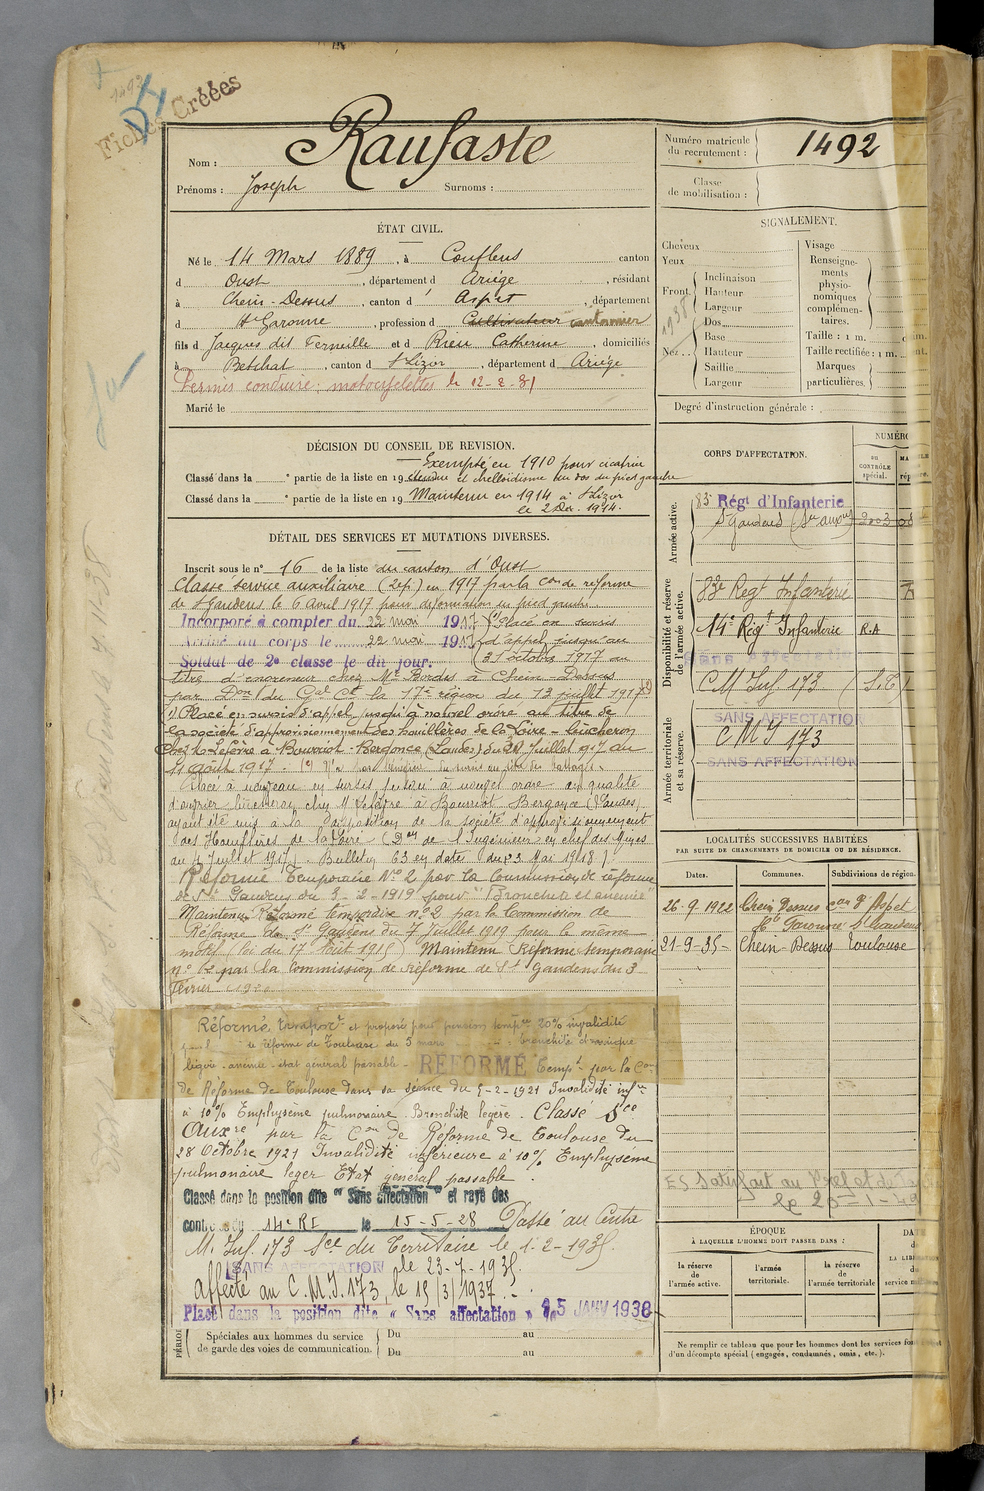 1492
Fiches Créées
Nom : Raufaste
Prénoms : Joseph Surnoms :
Numéro matricule du recrutement : 1492
Classe de mobilisation :
ÉTAT CIVIL.
Né le 14 Mars 1889, à Couflens canton
d Oust, département d Ariége, résidant
à Chein-Dessus, canton d' Aspet, département
d Hte Garonne, profession d Cultivateur cantonnier
fils d Jacques dit Ferneille et d Rieu Catherine, domiciliés
à Betchat, canton d St Lizier, département d Ariége
Permis conduire: motocyclettes le 12-8-31
Marié le
SIGNALEMENT.
Cheveux
Yeux
Front. Inclinaison
Hauteur
Largeur
Nez.. Dos
Base
Hauteur
Saillie
Largeur
Visage
Renseignements physionomiques complémentaires.
Taille : 1 m. cent.
Taille rectifiée : 1 m. cent.
Marques particulières.
Degré d'instruction générale :
DÉCISION DU CONSEIL DE REVISION.
Exempté en 1910 pour cicatrice
Classé dans la ° partie de la liste en 19 et chelloïdisme au dos du pied gauche
Classé dans la ° partie de la liste en 19 Maintenu en 1914 à St Lizier
le 2 Déc. 1914.
DÉTAIL DES SERVICES ET MUTATIONS DIVERSES.
Inscrit sous le n° 16 de la liste du canton d'Oust
Classé service auxiliaire en 1917 par la Con de réforme
de St Gaudens le 6 avril 1917 pour déformation du pied gauche
Incorporé à compter du 22 mai 1917 Placé en sursis
Arrivé au corps le 22 mai 1917 d'appel jusqu'au
Soldat de 2e classe le dit jour. 31 octobre 1917 au
titre d'engreneur chez Mr Bordes à Chein-Dessus
par Don du Gal Ct la 17e région du 12 juillet 1917
Placé en sursis d'appel jusqu'à nouvel ordre au titre de
la société d'approvisionnement des houillères de la Loire - bûcheron
chez M. Lefèvre à Bourriot-Bergonce (Landes) du 31 Juillet 917 au
11 août 1917.
Placé à nouveau en sursis jusqu'à nouvel ordre en qualité
d'ouvrier bûcheron chez M. Lefèvre à Bourriot Bergonce (Landes)
ayant été mis à la disposition de la société d'approvisionnement
des Houillères de la Loire (Don de l'Ingénieur en chef des Mines
du 4 Juillet 1917). Bulletin 63 en date du 3 Mai 1918)
Réformé Temporaire N° 2 par la Commission de réforme
de St Gaudens du 3-2-1919 pour "Bronchite et anémie"
Maintenu Réformé temporaire n° 2 par la Commission de
Réforme de St Gaudens du 7 Juillet 1919 pour le même
motif (loi du 17 Août 1915) Maintenu Réformé temporaire
n° 2 par la Commission de Réforme de St Gaudens du 3
Février 1920.
Réformé tempore et proposé pour pension tempre 20% invalidité
de réforme de Toulouse du 5 mars bronchite chronique
légère - anémie - état général passable - REFORMÉ Tempe par la Con
de Réforme de Toulouse dans sa séance du 5-2-1921 Invalidité infre
à 10% Emphysème pulmonaire. Bronchite légère. Classé Sce
Auxre par la Con de Réforme de Toulouse du
28 Octobre 1921 Invalidité inférieure à 10% Emphysème
pulmonaire léger Etat général passable.
Classé dans la position dite "Sans affectation" et rayé des
contrôles du 14e RI le 15-5-28 Passé au Centre
M. Inf. 173 Sce du Territoire le 1-2-1935.
SANS AFFECTATION le 23-7-1935.
affecté au C.M.I. 173, le 15/3/1937.
Placé dans la position dite « Sans affectation » le 15 JANV 1938
PÉRIODES
Spéciales aux hommes du service
de garde des voies de communication.
Du au
Du au
CORPS D'AFFECTATION.
NUMÉRO
DU CONTRÔLE spécial.
Armée active.
83 Régt d'Infanterie
St Gaudens
Disponibilité et réserve de l'armée active.
83e Regt Infanterie
14e Régt Infanterie R.A
Sans Affectation
C M Inf 173 (S.T)
Armée territoriale et sa réserve.
SANS AFFECTATION
C M I 173
SANS AFFECTATION
LOCALITÉS SUCCESSIVES HABITÉES
PAR SUITE DE CHANGEMENTS DE DOMICILE OU DE RÉSIDENCE.
Dates. Communes. Subdivisions de région.
26-9-1922 Chein Dessus con d'Aspet
Hte Garonne St Gaudens
21-9-35 Chein-Dessus Toulouse
ES Satisfait au
le 20-1-49
ÉPOQUE
À LAQUELLE L'HOMME DOIT PASSER DANS :
la réserve de l'armée active.
l'armée territoriale.
la réserve de l'armée territoriale
Ne remplir ce tableau que pour les hommes dont les services font
d'un décompte spécial (engagés, condamnés, omis, etc.).